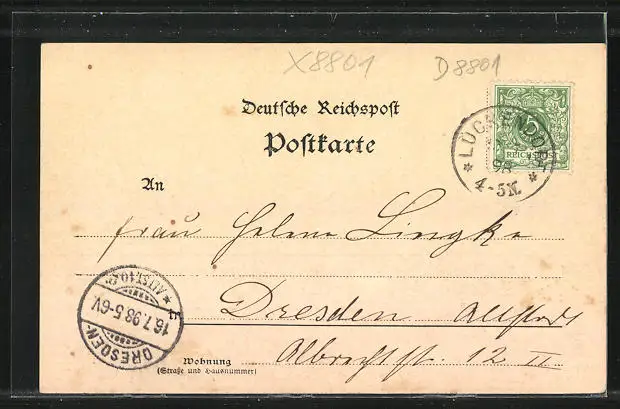 X8801 D8801
Deutsche Reichspost
Postkarte
5
REICHSPOST
LÜCKENDORF
98
4-5N.
An
Frau Helene Lingke
in
Dresden Altstadt
Albrechtstr. 12 II
Wohnung
(Straße und Hausnummer)
DRESDEN-
16.7.98.5-6V.
* ALTST.10.c.